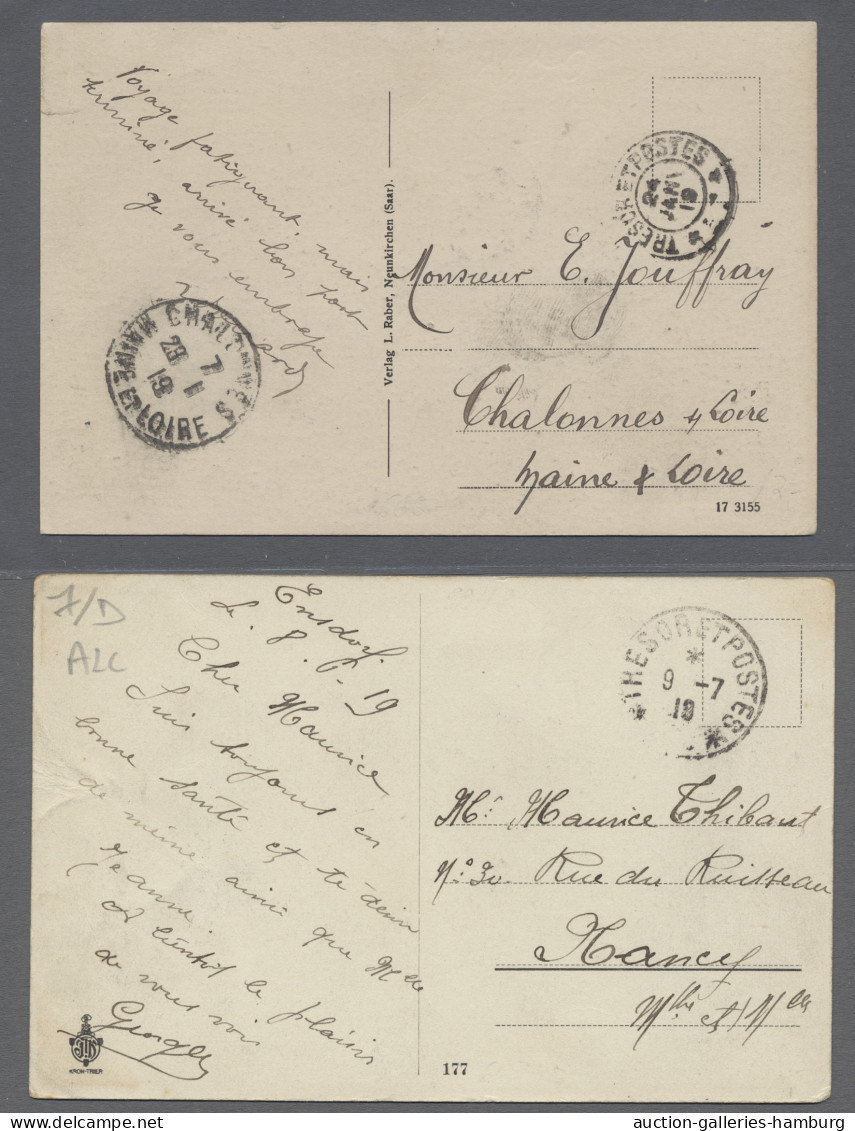 Voyage fatiguant, mais
terminé, arrivé bon port
je vous embrasse
Verlag L. Raber, Neunkirchen (Saar).
TRESOR ET POSTES
24
JANV
19
Monsieur E. Jouffray
Chalonnes s/ Loire
Maine & Loire
17 3155
7
29 1
19
MAINE ET LOIRE
7/D
ALC
Ensdorf
Cher Maurice
Suis toujours en
bonne santé et te désire
de même ainsi que Melle
Jeanne.
A bientôt le plaisir
de vous voir
Georges
KRON-TRIER
TRESOR ET POSTES
9 -7
19
Mr Maurice Thibaut
No 30 Rue du Ruisseau
Nancy
Mthe et Mlle
177
auction-galleries-hamburg